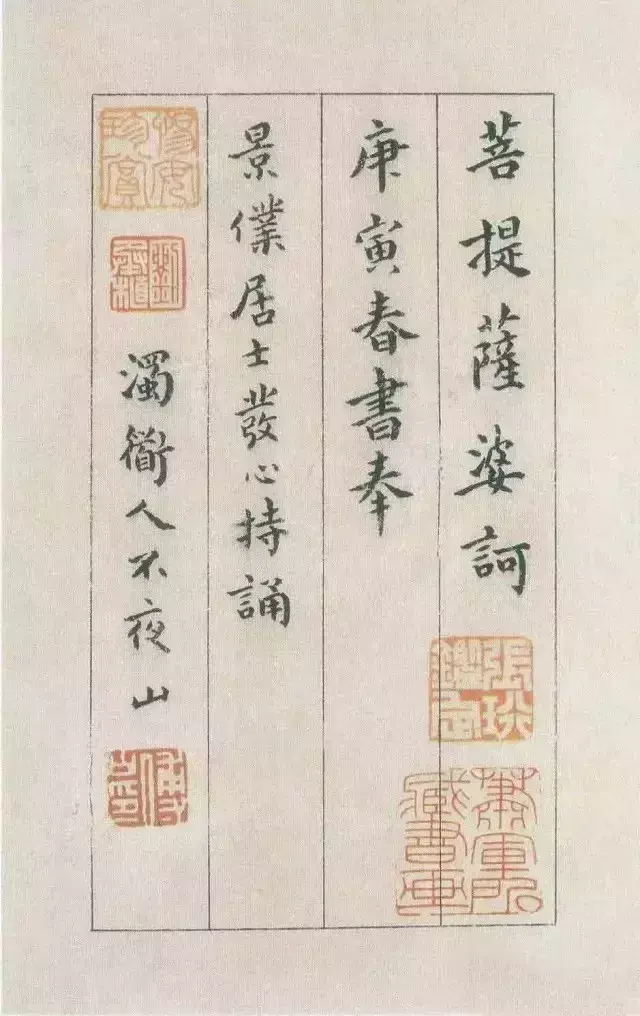 菩提薩婆訶
庚寅春書奉
景僕居士發心持誦
濁衜人不夜山